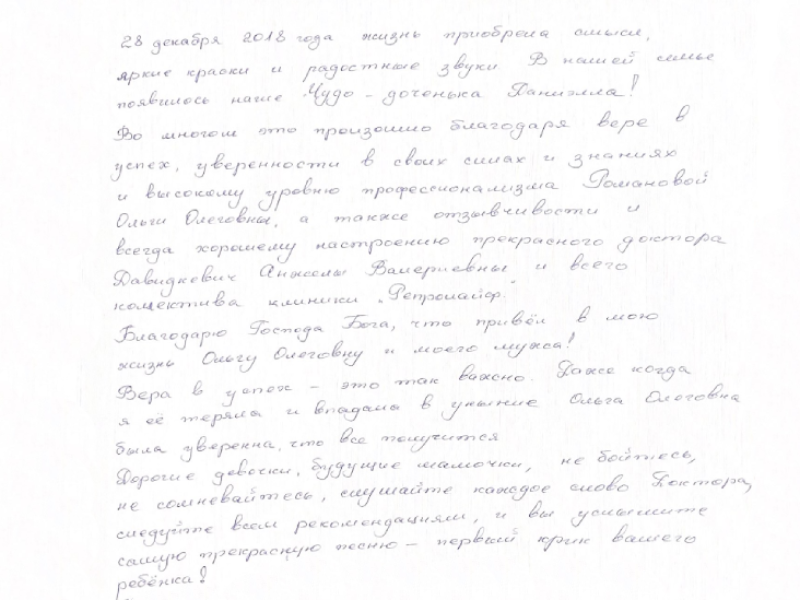 28 декабря 2018 года жизнь приобрела смысл,
яркие краски и радостные звуки. В нашей семье
появилось наше Чудо - доченька Даниэлла!
Во многом это произошло благодаря вере в
успех, уверенности в своих силах и знаниях
и высокому уровню профессионализма Романовой
Ольги Олеговны, а также отзывчивости и
всегда хорошему настроению прекрасного доктора
Давидкович Анжелы Валериевны и всего
коллектива клиники "Ретролайф."
Благодарю Господа Бога, что привёл в мою
жизнь Ольгу Олеговну и моего мужа!
Вера в успех - это так важно. Даже когда
я её теряла и впадала в уныние Ольга Олеговна
была уверенна, что все получится
Дорогие девочки, будущие мамочки, не бойтесь,
не сомневайтесь, слушайте каждое слово Доктора,
следуйте всем рекомендациям, и вы услышите
самую прекрасную песню - первый крик вашего
ребёнка!